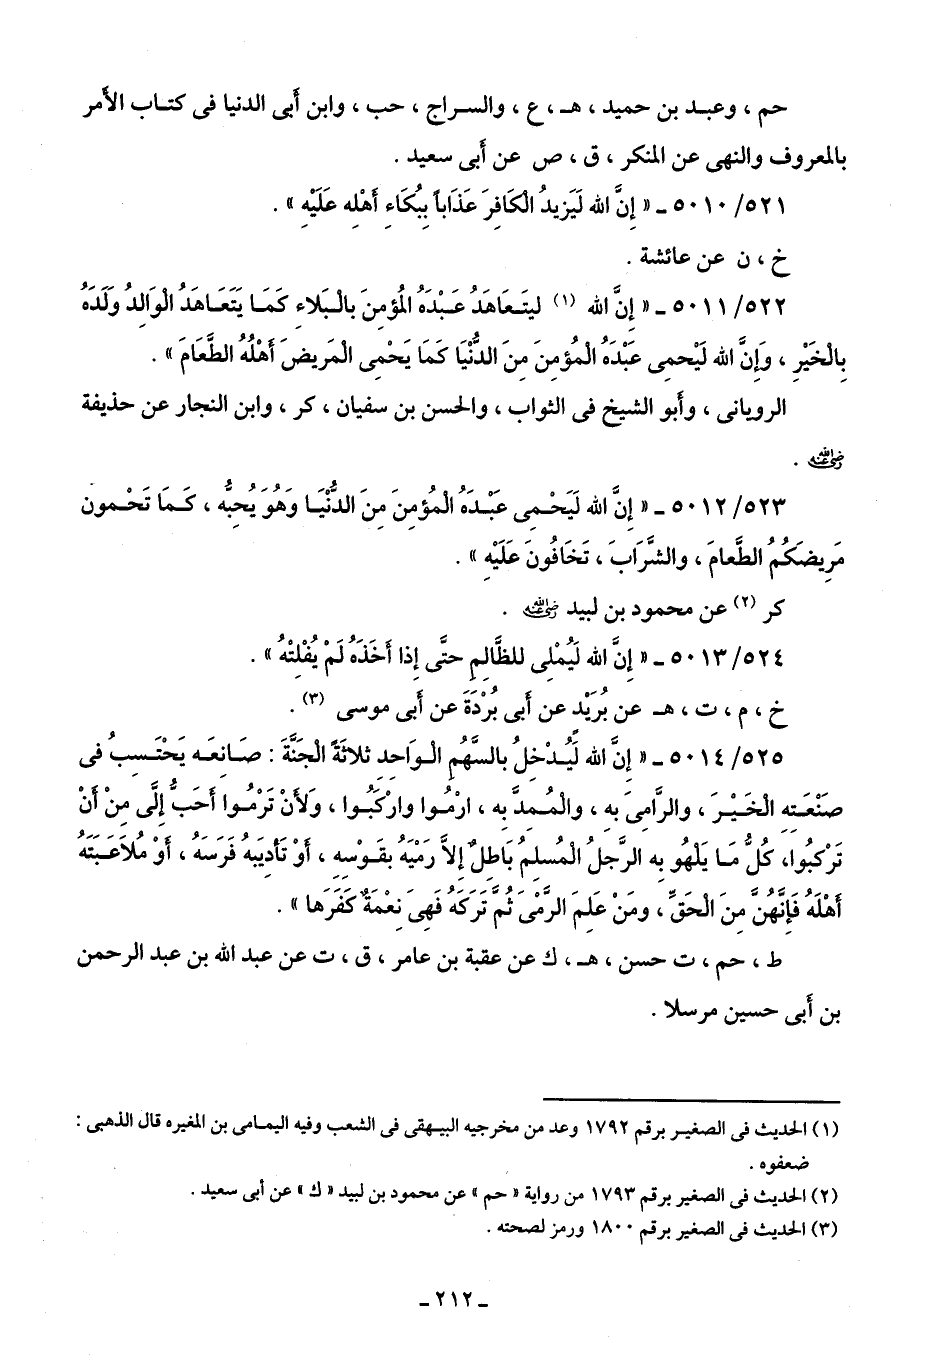 حم ، وعبد بن حميد ، هـ ، ع ، والسراج ، حب ، وابن أبى الدنيا فى كتاب الأمر
بالمعروف والنهى عن المنكر ، ق ، ص عن أبى سعيد .
٥٢١/ ٥٠١٠ ـ « إِنَّ الله لَيَزِيدُ الْكَافِرَ عَذَاباً بِبُكَاءِ أَهْلِهِ عَلَيْهِ » .
خ ، ن عن عائشة .
٥٢٢/ ٥٠١١ ـ « إِنَّ الله (١) ليتَعَاهَدُ عَبْدَهُ الْمُؤمِنَ بِالْبَلاَءِ كَمَا يَتَعَاهَدُ الْوَالِدُ وَلَدَهُ
بِالْخَيْرِ ، وَإِنَّ الله لَيْحمِى عَبْدَهُ الْمُؤمِنَ مِنَ الدُّنْيَا كَمَا يَحْمِى الْمَرِيضَ أَهْلُهُ الطَّعَامَ » .
الرويانى ، وأبو الشيخ فى الثواب ، والحسن بن سفيان ، كر ، وابن النجار عن حذيفة
رضي الله عنه .
٥٢٣/ ٥٠١٢ ـ « إِنَّ الله لَيَحْمِى عَبْدَهُ الْمُؤمِنَ مِنَ الدُّنْيَا وَهُوَ يُحِبُّه ، كَمَا تَحْمون
مَرِيضَكُمُ الطَّعامَ ، والشَّرَابَ ، تَخَافُونَ عَلَيْهِ » .
كر (٢) عن محمود بن لبيد رضي الله عنه .
٥٢٤/ ٥٠١٣ ـ « إِنَّ الله لَيُمْلِى للظَّالِمِ حتَّى إِذَا أَخَذَهُ لَمْ يُفْلِتْهُ » .
خ ، م ، ت ، هـ عن بُرَيْدٍ عن أبى بُرْدَةَ عن أبى موسى (٣) .
٥٢٥/ ٥٠١٤ ـ « إِنَّ الله لَيُدْخِلُ بالسَّهْمِ الْوَاحِد ثَلاثَةً الْجَنَّةَ : صَانِعَه يَحْتَسِبُ فى
صَنْعَتِه الْخَيْرَ ، والرَّامِىَ بِه ، والْمُمِدَّ به ، ارْمُوا وارْكَبُوا ، وَلأَنْ تَرْمُوا أَحَبُّ إِلَّى مِنْ أَنْ
تَرْكَبُوا، كُلُّ مَا يَلْهُو بِه الرَّجلُ الْمُسلِمُ بَاطِلٌ إِلاَّ رَمْيَهُ بِقَوْسِهِ ، أَوْ تَأْدِيبَهُ فَرَسَهُ ، أَوْ مُلاَعَبَتَهُ
أَهْلَهُ فَإِنَّهُنَّ مِنَ الْحَقِّ ، وَمَنْ عَلِمَ الرَّمْىَ ثُمَّ تَرَكَهُ فَهِىَ نِعْمَةٌ كَفَرَهَا » .
ط ، حم ، ت حسن ، هـ ، ك عن عقبة بن عامر ، ق ، ت عن عبد الله بن عبد الرحمن
بن أبى حسين مرسلا .
(١) الحديث فى الصغير برقم ١٧٩٢ وعد من مخرجيه البيهقى فى الشعب وفيه اليمامى بن المغيره قال الذهبى :
ضعفوه .
(٢) الحديث فى الصغير برقم ١٧٩٣ من رواية « حم » عن محمود بن لبيد « ك » عن أبى سعيد .
(٣) الحديث فى الصغير برقم ١٨٠٠ ورمز لصحته .
ـ ٢١٢ ـ